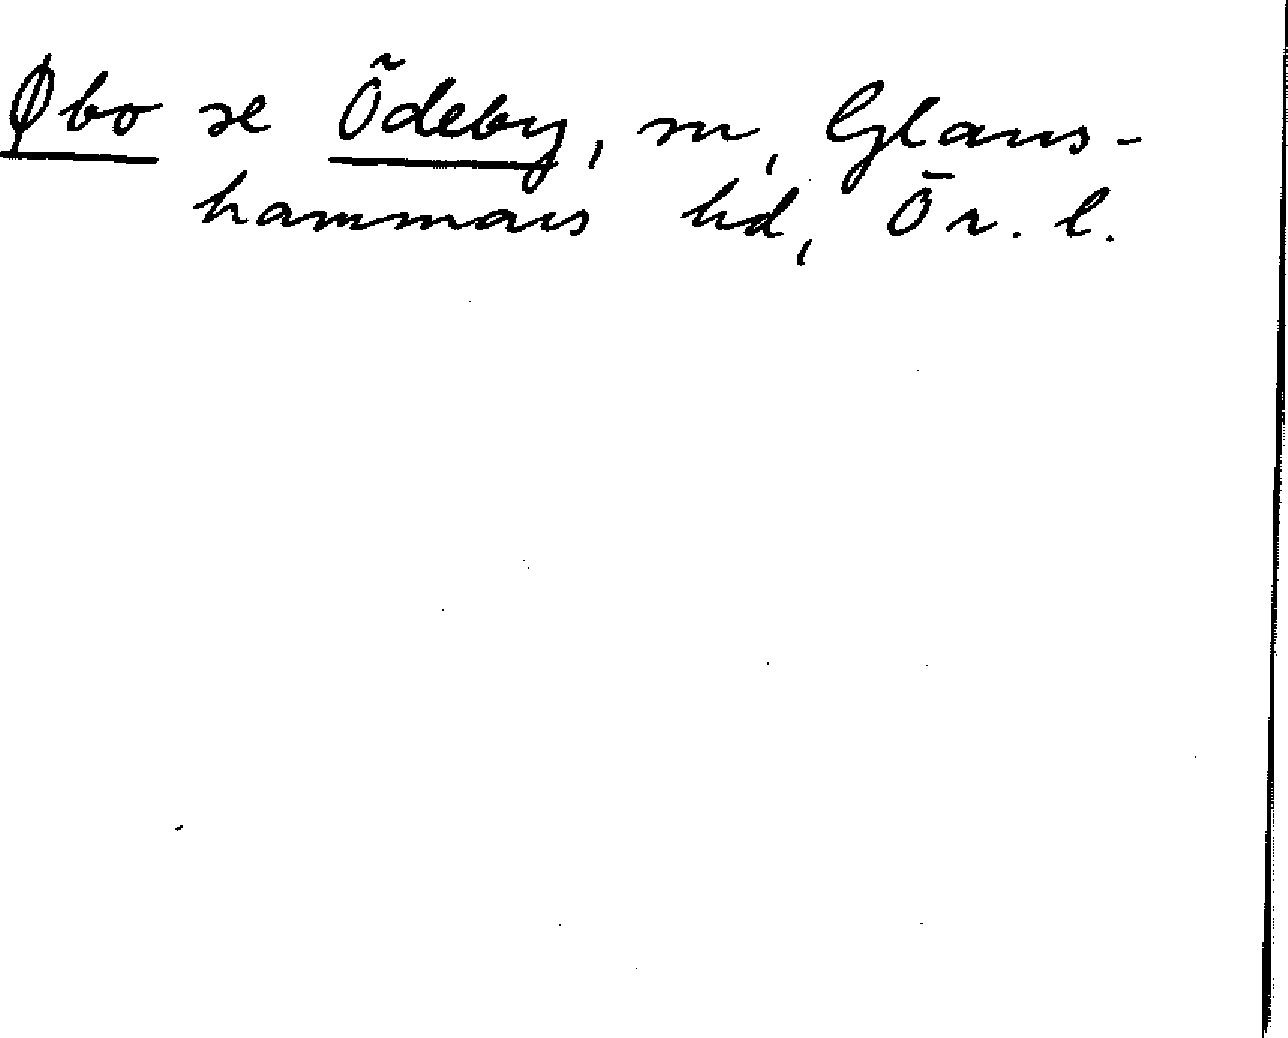 Øbo se Ödeby, sn, Glans-
hammars hd, Ör. l.